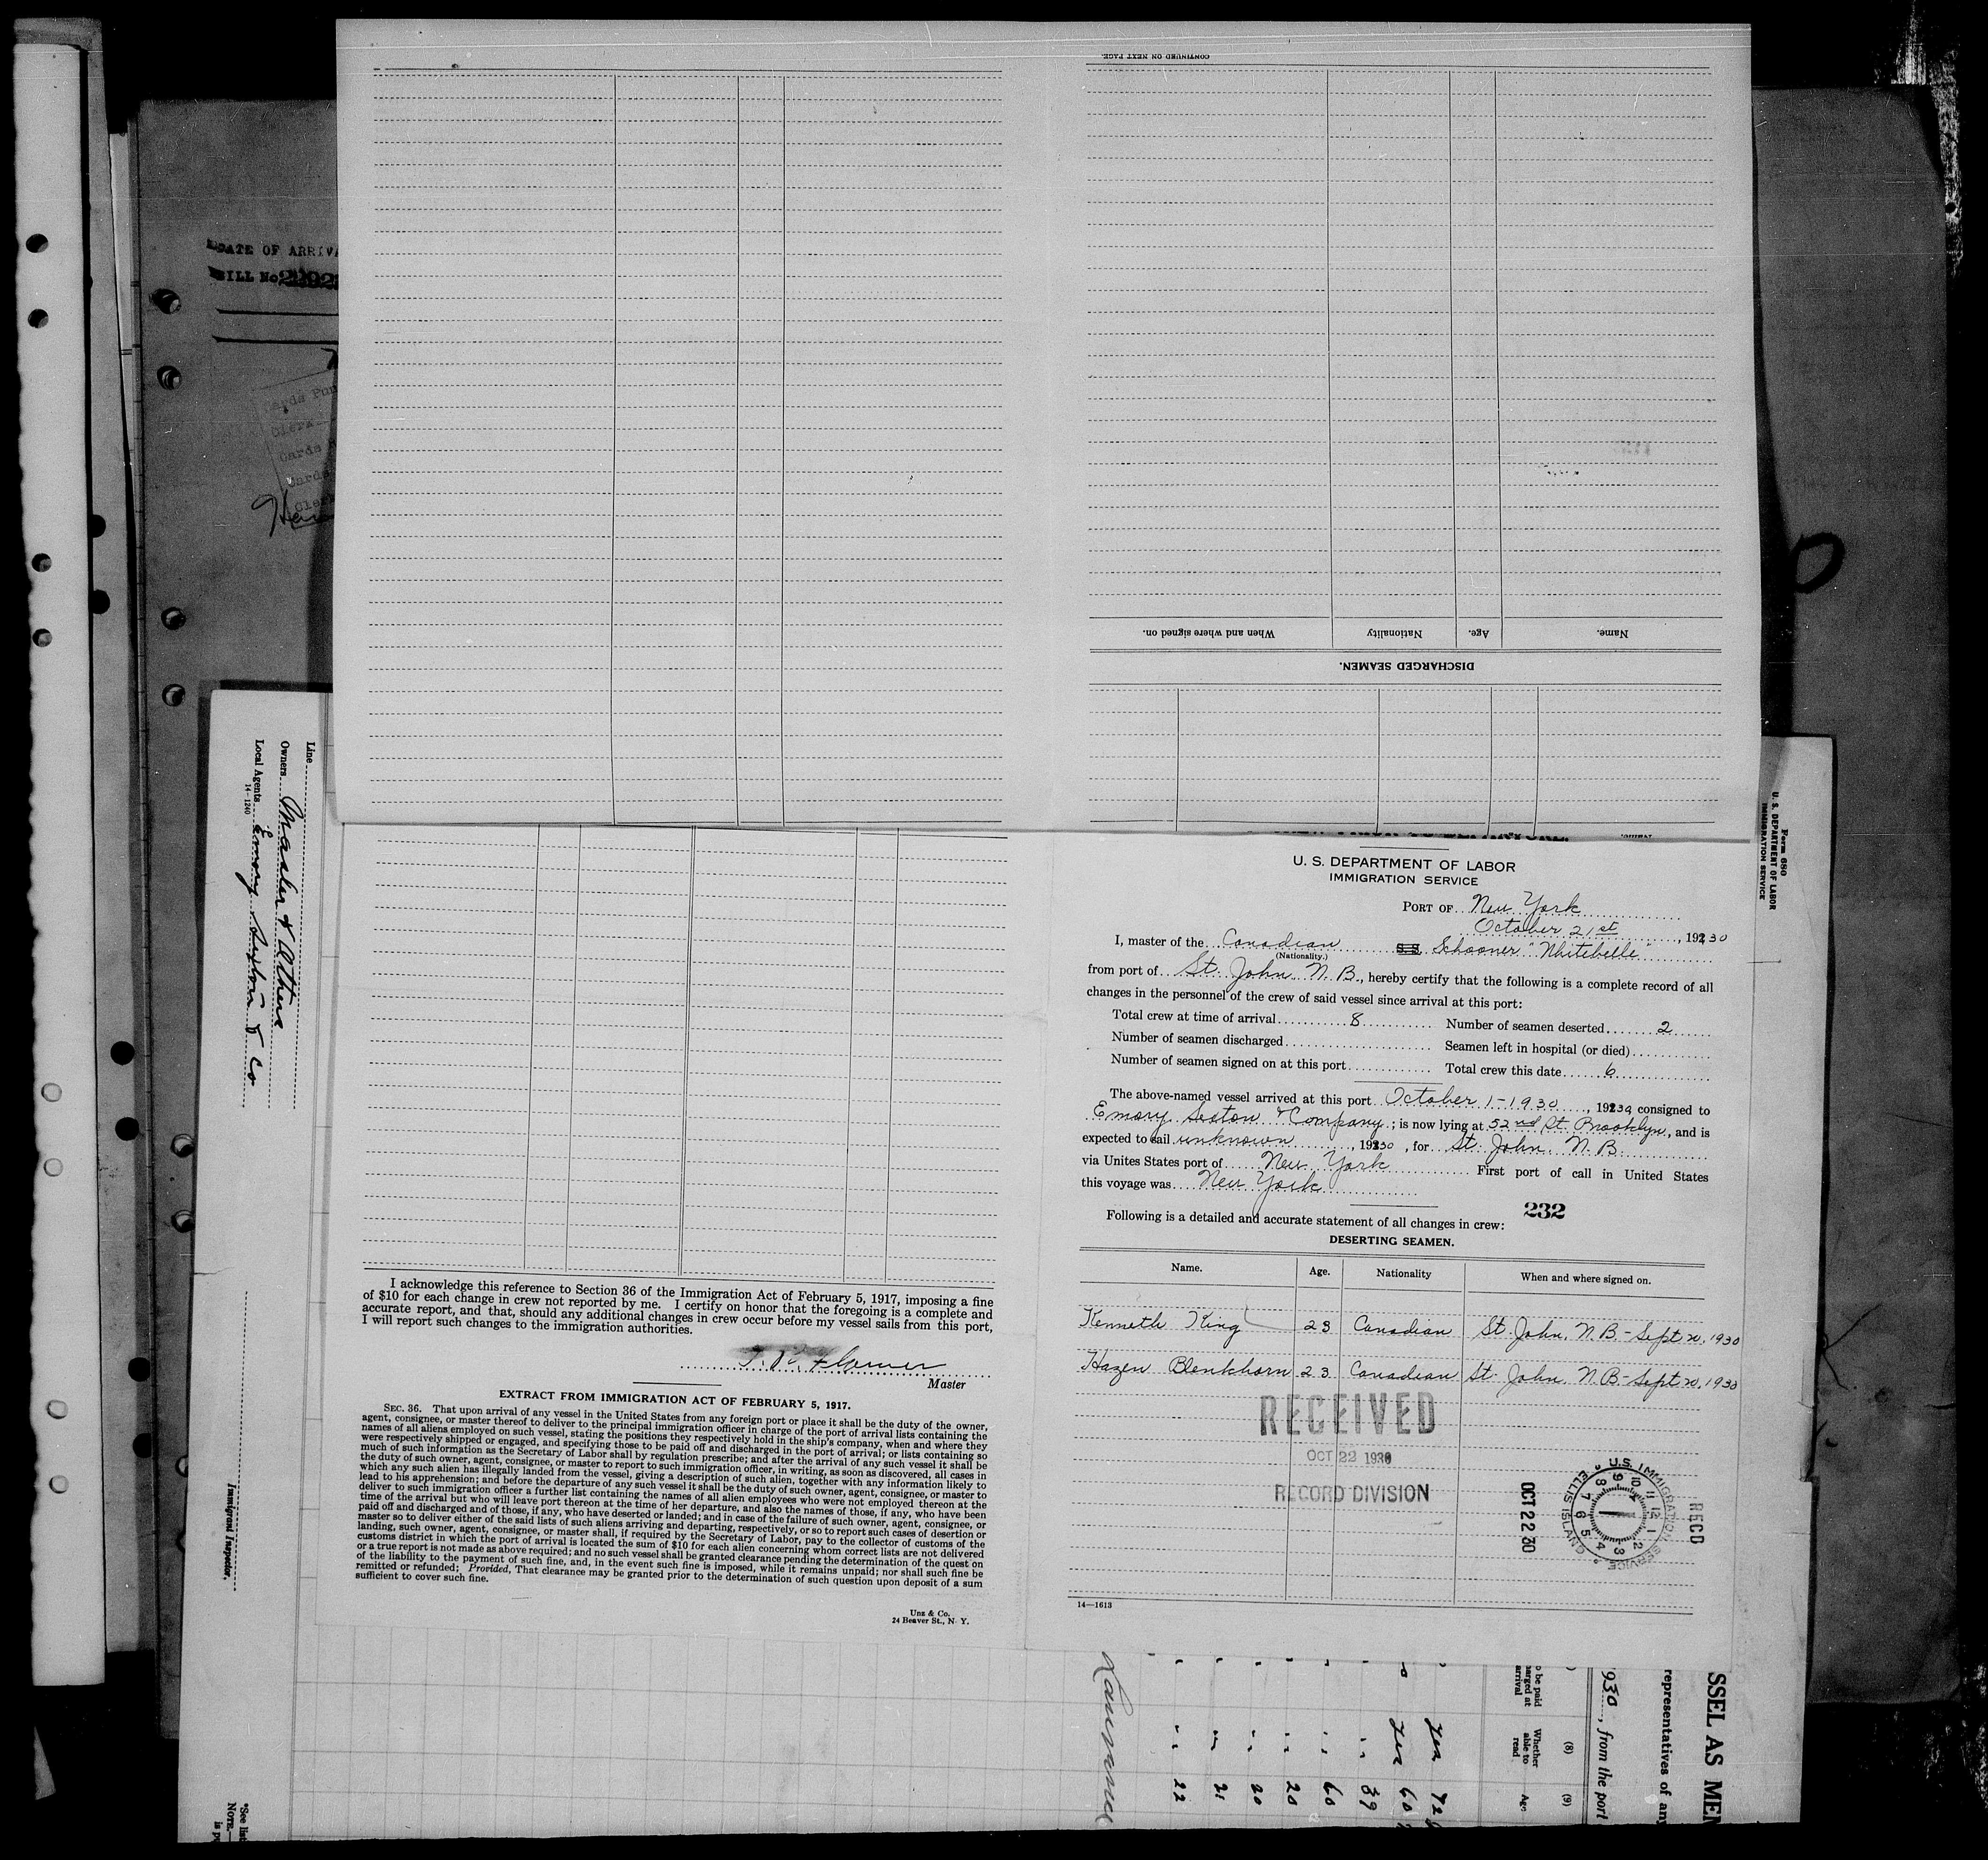 CONTINUED ON NEXT PAGE.
Name.
Age.
Nationality
When and where signed on.
DISCHARGED SEAMEN.
DATE OF ARRIVA
BILL No.
Cards Pun
Clerk
Cards
Cards
Clerk
Line
Owners Master & Others
Local Agents Emory Sexton & Co
14-1240
Immigrant Inspector.
*See list
NOTE.—
is p
Form 680
U. S. DEPARTMENT OF LABOR
IMMIGRATION SERVICE
U. S. DEPARTMENT OF LABOR
IMMIGRATION SERVICE
PORT OF New York
October 21st, 1930
I, master of the Canadian S.S. Schooner "Whitebelle"
(Nationality.)
from port of St. John N. B., hereby certify that the following is a complete record of all
changes in the personnel of the crew of said vessel since arrival at this port:
Total crew at time of arrival 8 Number of seamen deserted 2
Number of seamen discharged Seamen left in hospital (or died)
Number of seamen signed on at this port Total crew this date 6
The above-named vessel arrived at this port October 1-1930, 1930 consigned to
Emory Sexton & Company; is now lying at 52nd St. Brooklyn, and is
expected to sail unknown, 1930, for St. John. N. B.
via Unites States port of New York First port of call in United States
this voyage was New York
232
Following is a detailed and accurate statement of all changes in crew:
DESERTING SEAMEN.
Name. Age. Nationality When and where signed on.
Kenneth King 23 Canadian St. John. N. B. - Sept 20, 1930
Hazen Blenkhorn 23 Canadian St. John. N. B. - Sept 20, 1930
RECEIVED
OCT 22 1930
RECORD DIVISION
OCT 22 30
U.S. IMMIGRATION SERVICE ELLIS ISLAND
RECD
14—1613
I acknowledge this reference to Section 36 of the Immigration Act of February 5, 1917, imposing a fine
of $10 for each change in crew not reported by me. I certify on honor that the foregoing is a complete and
accurate report, and that, should any additional changes in crew occur before my vessel sails from this port,
I will report such changes to the immigration authorities.
Master
EXTRACT FROM IMMIGRATION ACT OF FEBRUARY 5, 1917.
SEC. 36. That upon arrival of any vessel in the United States from any foreign port or place it shall be the duty of the owner,
agent, consignee, or master thereof to deliver to the principal immigration officer in charge of the port of arrival lists containing the
names of all aliens employed on such vessel, stating the positions they respectively hold in the ship's company, when and where they
were respectively shipped or engaged, and specifying those to be paid off and discharged in the port of arrival; or lists containing so
much of such information as the Secretary of Labor shall by regulation prescribe; and after the arrival of any such vessel it shall be
the duty of such owner, agent, consignee, or master to report to such immigration officer, in writing, as soon as discovered, all cases in
which any such alien has illegally landed from the vessel, giving a description of such alien, together with any information likely to
lead to his apprehension; and before the departure of any such vessel it shall be the duty of such owner, agent, consignee, or master to
deliver to such immigration officer a further list containing the names of all alien employees who were not employed thereon at the
time of the arrival but who will leave port thereon at the time of her departure, and also the names of those, if any, who have been
paid off and discharged and of those, if any, who have deserted or landed; and in case of the failure of such owner, agent, consignee, or
master so to deliver either of the said lists of such aliens arriving and departing, respectively, or so to report such cases of desertion or
landing, such owner, agent, consignee, or master shall, if required by the Secretary of Labor, pay to the collector of customs of the
customs district in which the port of arrival is located the sum of $10 for each alien concerning whom correct lists are not delivered
or a true report is not made as above required; and no such vessel shall be granted clearance pending the determination of the quest on
of the liability to the payment of such fine, and, in the event such fine is imposed, while it remains unpaid; nor shall such fine be
remitted or refunded; Provided, That clearance may be granted prior to the determination of such question upon deposit of a sum
sufficient to cover such fine.
Unz & Co.
24 Beaver St., N. Y.
SSEL AS MEN
representatives of any
930, from the port
(8)
(9)
o be paid
harged at
arrival
Whether
able to
read
Age
Yes 42
Yes 60
" 39
" 60
" 20
" 20
" 21
" 22